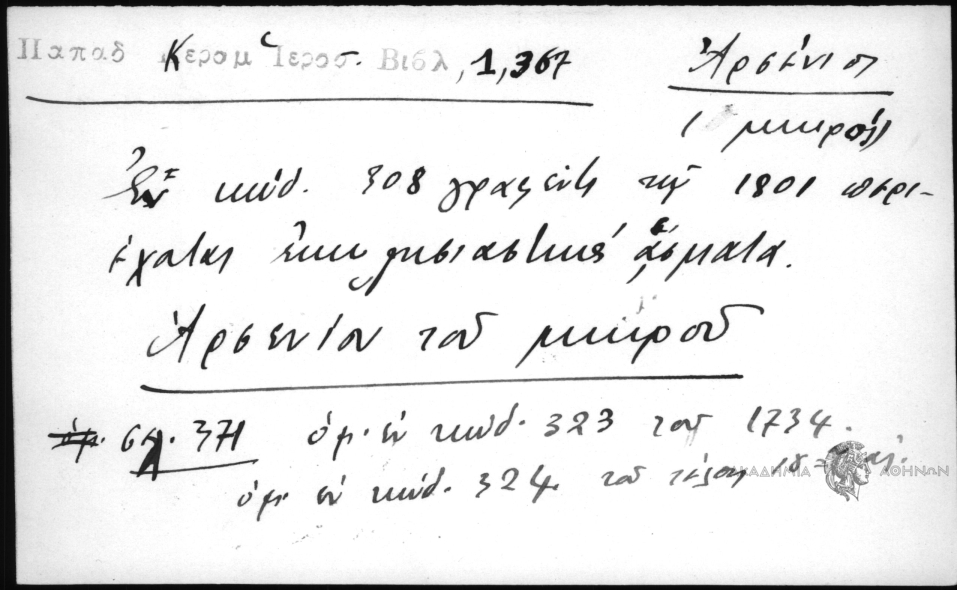 Παπαδ Κεραμ Ἱεροσ. Βιβλ, 1, 367
Ἀρσένιος
(μικρός)
Ἐν κώδ. 308 γραφέντι τῷ 1801 περι-
έχεται ἐκκλησιαστικά ᾄσματα.
Ἀρσενίου τοῦ μικροῦ
σλ. 371 ὁμ. ἐν κώδ. 323 τοῦ 1734.
ὁμ. ἐν κώδ. 324 τοῦ τέλους 18
ΑΚΑΔΗΜΙΑ ΑΘΗΝΩΝ